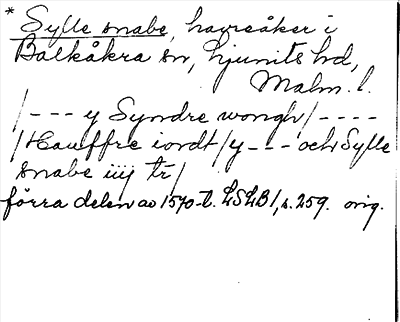 * Sylle snabe, havreåker i
Balkåkra sn, Ljunits hd,
Malm. l.
/--- y Syndre wongh/----
/Hauffre iordt/y --- och Sylle
snabe iiij tr/
förra delen av 1570-t. LSLB 1, s. 259. orig.